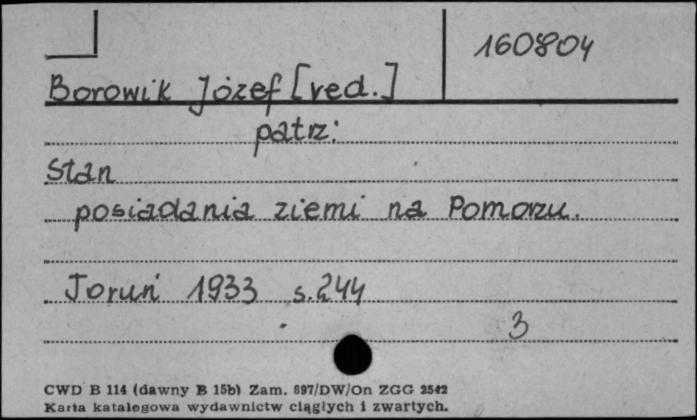 160804
Borowik Józef [red.]
patrz:
Stan
posiadania ziemi na Pomorzu.
Toruń 1933 s.244
3
CWD B 114 (dawny B 15b) Zam. 897/DW/On ZGG 2542
Karta katalogowa wydawnictw ciągłych i zwartych.